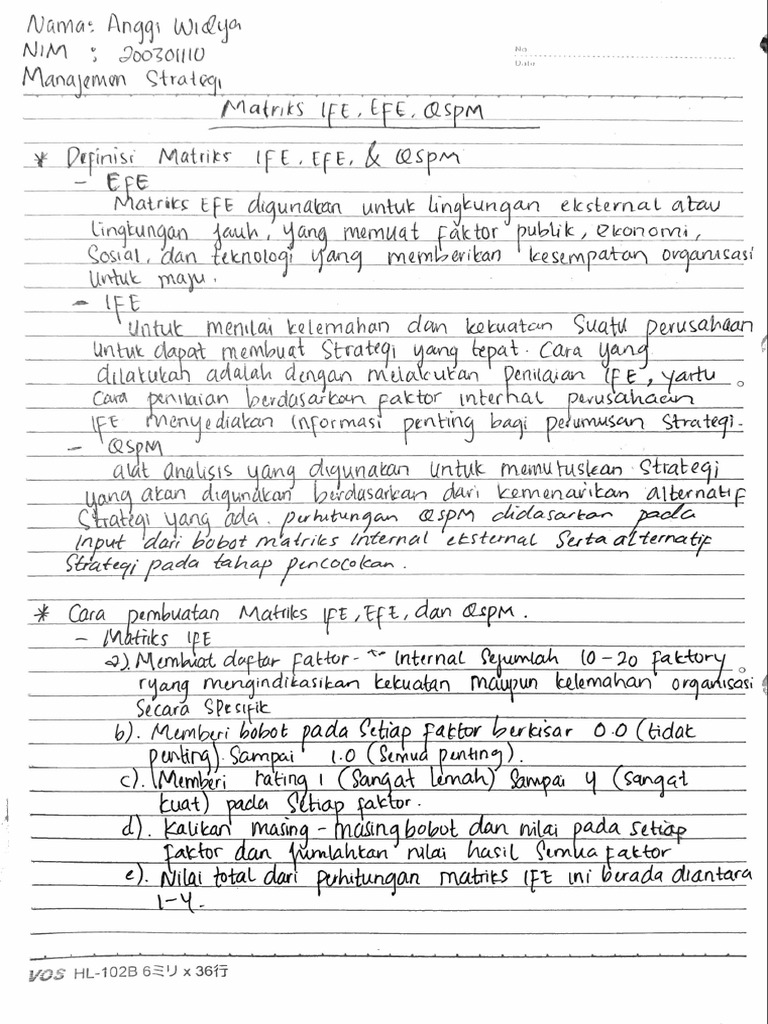 Nama: Anggi Widya
NIM : 200301110
No
Date
Manajemen Strategi
Matriks IFE, EFE, QSPM
* Definisi Matriks IFE, EFE, & QSPM
- EFE
Matriks EFE digunakan untuk lingkungan eksternal atau
lingkungan jauh, yang memuat faktor publik, ekonomi,
Sosial, dan teknologi yang memberikan kesempatan organisasi
Untuk maju.
- IFE
Untuk menilai kelemahan dan kekuatan Suatu perusahaan
Untuk dapat membuat Strategi yang tepat. Cara yang
dilakukah adalah dengan melakukan penilaian IFE, yaitu
Cara penilaian berdasarkan faktor internal perusahaan
IFE menyediakan informasi penting bagi perumusan Strategi.
- QSPM
alat analisis yang digunakan untuk memutuskan Strategi
yang akan digunakan berdasarkan dari kemenarikan alternatif
Strategi yang ada. perhitungan QSPM didasarkan pada
Input dari bobot matriks internal eksternal Serta alternatif
Strategi pada tahap pencocokan.
* Cara pembuatan Matriks IFE, EFE, dan QSPM.
- Matriks IFE
a). Membuat daftar Faktor- Internal Sejumlah 10-20 faktory
ryang mengindikasikan kekuatan maupun kelemahan organisasi
Secara Spesifik
b). Memberi bobot pada Setiap faktor berkisar 0.0 (tidak
penting) Sampai 1.0 (Semua penting).
c). Memberi rating 1 (Sangat lemah) Sampai 4 (sangat
kuat) pada Setiap faktor.
d). Kalikan masing-masing bobot dan nilai pada setiap
faktor dan jumlahkan nilai hasil Semua faktor
e). Nilai total dari perhitungan matriks IFE ini berada diantara
1-4.
VOS HL-102B 6ミリ x 36行